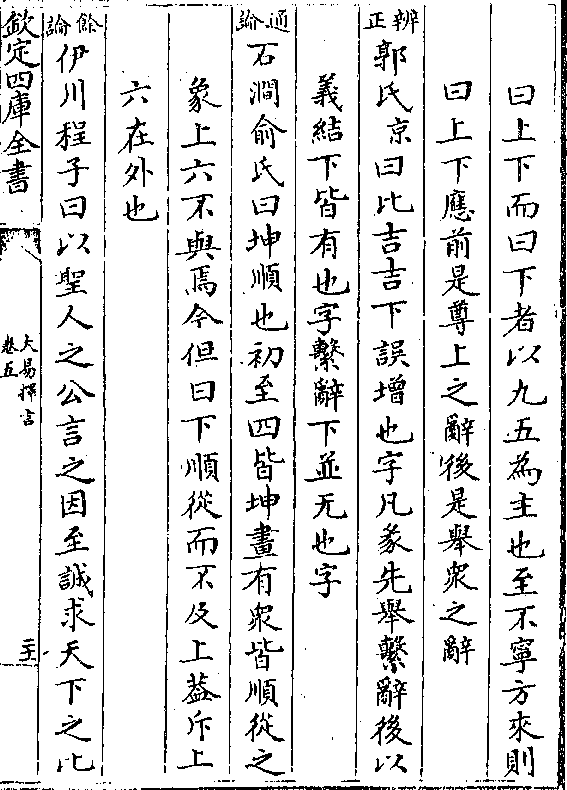 曰上下而曰下者以九五為主也至不寧方來則
曰上下應前是尊上之辭後是舉衆之辭
辨正
郭氏京曰比吉吉下誤增也字凡彖先舉繫辭後以
義結下皆有也字繫辭下並无也字
通論
石澗俞氏曰坤順也初至四皆坤畫有衆皆順從之
象上六不與焉今但曰下順從而不及上蓋斥上
六在外也
餘論
伊川程子曰以聖人之公言之因至誠求天下之比
欽定四庫全書
大易擇言
卷五